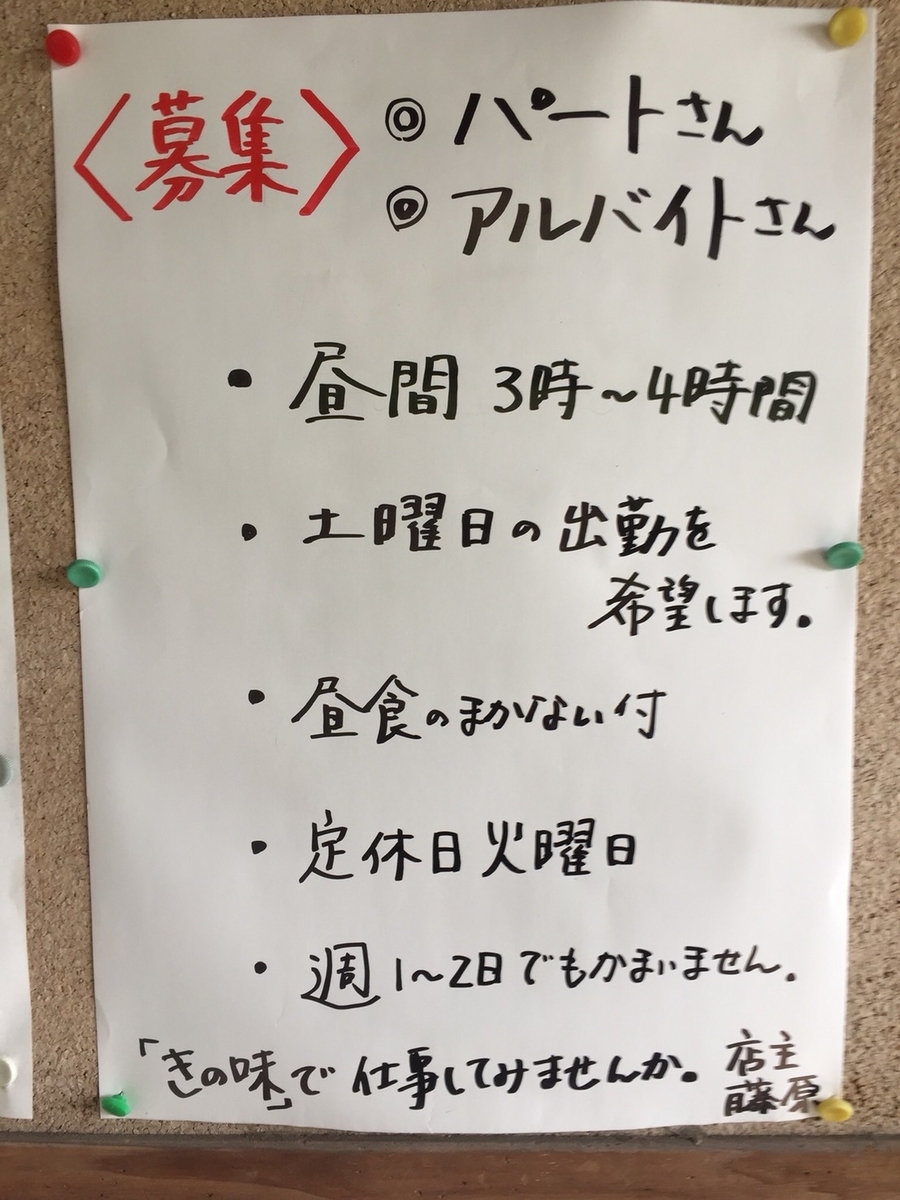 〈募集〉 ◎ パートさん
◎ アルバイトさん
・ 昼間 3時～4時間
・ 土曜日の出勤を
希望します。
・ 昼食のまかない付
・ 定休日火曜日
・ 週1～2日でもかまいません。
「きの味」で 仕事してみませんか。 店主
藤原